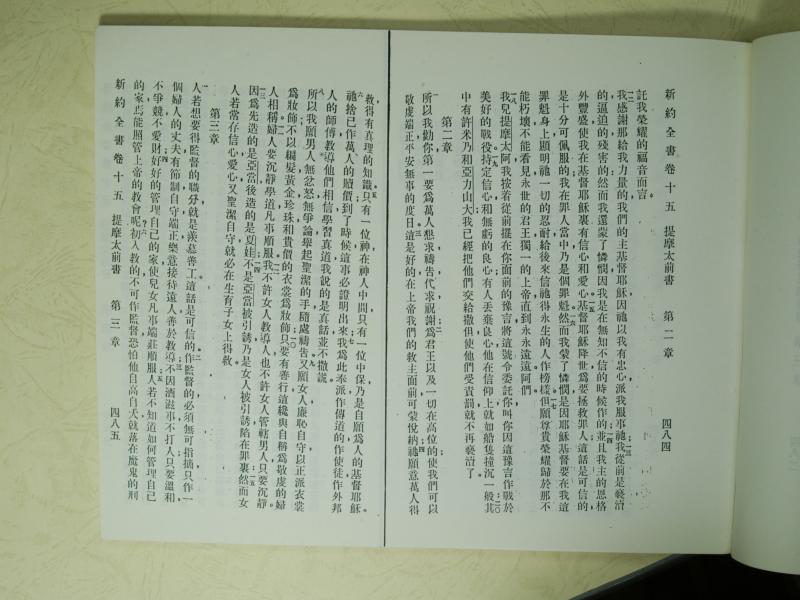 新約全書卷十五 提摩太前書 第二章 四八四
託我榮耀的福音而言。
我感謝那給我力量的我們的主基督耶穌因祂以我有忠心派我服事祂我從前是褻瀆
的逼迫的殘害的然而我還蒙了憐憫因我是在無知不信的時候作的並且我主的恩格
外豐盛使我在基督耶穌裏有信心和愛心基督耶穌降世爲要拯救罪人這話是可信的
是十分可佩服的我在罪人當中乃是個罪魁然而我蒙了憐憫是因耶穌基督要在我這
罪魁身上顯明祂一切的忍耐給後來信祂得永生的人作榜樣但願尊貴榮耀歸於那不
能朽壞不能看見永世的君王獨一的上帝直到永永遠遠阿們。
我兒提摩太阿我按着從前擺在你面前的豫言將這號令委託你叫你因這豫言作戰於
美好的戰役持定信心和無虧的良心有人丟棄良心他在信仰上就如船隻撞沉一般其
中有許米乃和亞力山大我已經把他們交給撒但使他們受責罰就不再褻瀆了。
第二章
所以我勸你第一要爲萬人懇求禱告代求祝謝爲君王以及一切在高位的使我們可以
敬虔端正平安無事的度日這是好的在上帝我們的救主面前可蒙悅納祂願意萬人得
救得有真理的知識只有一位神在神人中間只有一位中保乃是自願爲人的基督耶穌。
祂捨己作萬人的贖價到了時候這事必證明出來我爲此奉派作傳道的作使徒作外邦
人的師傅教導他們相信學習真道我說的是真話並不撒謊。
所以我願男人無忿怒無爭論舉起聖潔的手隨處禱告又願女人廉恥自守以正派衣裳
爲妝飾不以編髮黃金珍珠和貴價的衣裳爲妝飾只要有善行這纔與自稱爲敬虔的婦
人相稱婦人要沉靜學道凡事順服我不許女人教導人也不許女人管轄男人只要沉靜
因爲先造的是亞當後造的是夏娃不是亞當被引誘乃是女人被引誘陷在罪裏然而女
人若常存信心愛心又聖潔自守就必在生育子女上得救。
第三章
人若想要得監督的職分就是羨慕善工這話是可信的作監督的必須無可指摘只作一
個婦人的丈夫有節制自守端正樂意接待遠人善於教導不因酒滋事不打人只要溫和
不爭競不愛財好好的管理自己的家使兒女凡事端莊順服人若不知道如何管理自己
的家焉能照管上帝的教會呢初入教的不可作監督恐怕他自高自大就落在魔鬼的刑
新約全書卷十五 提摩太前書 第三章 四八五